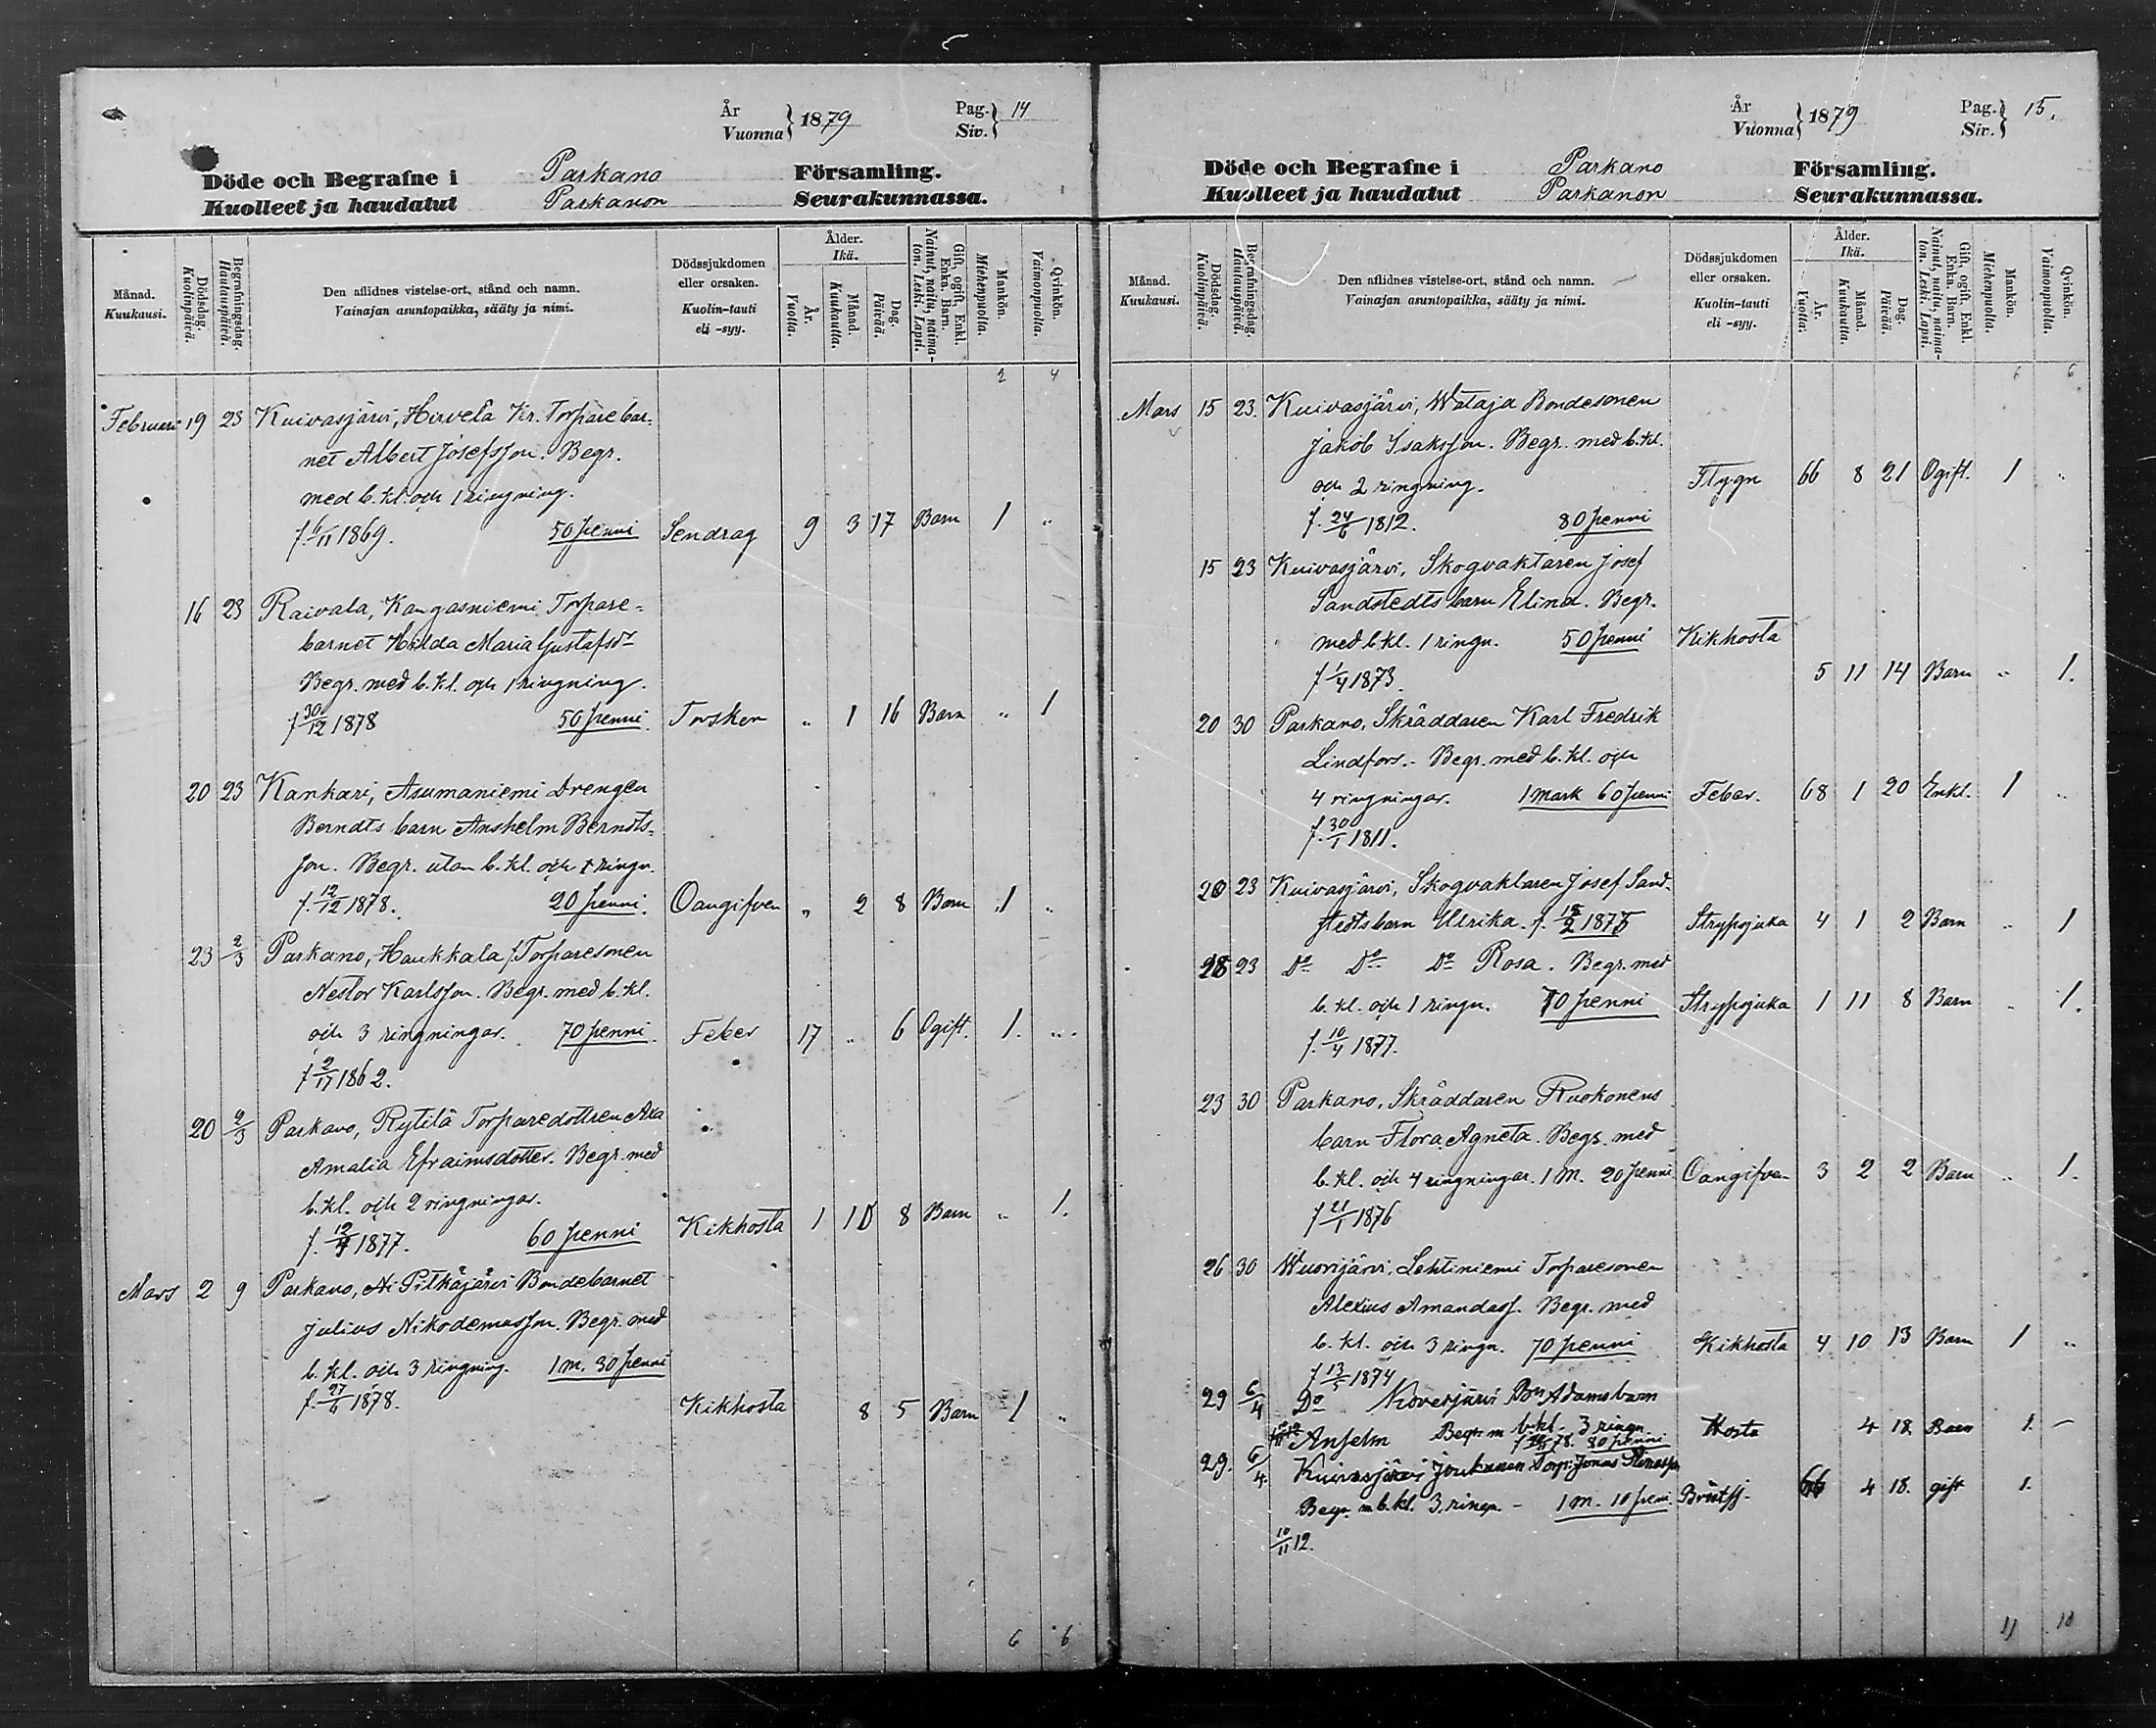 År
Vuonna } 1879
Pag.
Siv. } 14
Döde och Begrafne i Parkano Församling.
Kuolleet ja haudatut Parkanon Seurakunnassa.
Månad. Kuukausi.
Dödsdag. Kuolinpäivä.
Begrafningsdag. Hautauspäivä.
Den aflidnes vistelse-ort, stånd och namn.
Vainajan asuntopaikka, sääty ja nimi.
Dödssjukdomen eller orsaken.
Kuolin-tauti eli -syy.
Ålder. Ikä.
År. Vuotta.
Månad. Kuukautta.
Dag. Päivää.
Gift, ogift. Enkl. Enka. Barn.
Nainut, naitu, naimaton. Leski. Lapsi.
Mankön. Miehenpuolta.
Qvinkön. Vaimonpuolta.
2 4
Februari 19 23 Kuivasjärvi, Hirvelä Kr. Torpare bar-
net Albert Josefsson. Begr.
med b. kl. och 1 ringning.
f. 6/11 1869. 50 penni Sendrag 9 3 17 Barn 1 "
16 23 Raivala, Kangasniemi Torpare-
barnet Hilda Maria Gustafsdr
Begr. med b. kl. och 1 ringning.
f 30/12 1878 50 penni Torsken " 1 16 Barn " 1
20 23 Kankari, Asumaniemi Drengen
Berndts barn Anshelm Berndts-
son. Begr. utan b. kl. och ringn.
f. 12/12 1878. 20 penni. Oangifven " 2 8 Barn 1 "
23 2/3 Parkano, Haukkala Torparesonen
Nestor Karlsson. Begr. med b. kl.
och 3 ringningar. 70 penni. Feber 17 " 6 Ogift. 1. "
f 1862.
20 2/3 Parkano, Rytilä Torparedottren
Amalia Efraimsdotter. Begr. med
b. kl. och 2 ringningar.
f. 1877. 60 penni Kikhosta 1 10 8 Barn " 1.
Mars 2 9 Parkano, Pitkäjärvi Bondebarnet
Julius Nikodemusson. Begr. med
b. kl. och 3 ringning. 1 m. 30 penni
f. 27/6 1878. Kikhosta 8 5 Barn 1 "
6 6
År
Vuonna } 1879
Pag.
Siv. } 15.
Döde och Begrafne i Parkano Församling.
Kuolleet ja haudatut Parkanon Seurakunnassa.
Månad. Kuukausi.
Dödsdag. Kuolinpäivä.
Begrafningsdag. Hautauspäivä.
Den aflidnes vistelse-ort, stånd och namn.
Vainajan asuntopaikka, sääty ja nimi.
Dödssjukdomen eller orsaken.
Kuolin-tauti eli -syy.
Ålder. Ikä.
År. Vuotta.
Månad. Kuukautta.
Dag. Päivää.
Gift, ogift. Enkl. Enka. Barn.
Nainut, naitu, naimaton. Leski. Lapsi.
Mankön. Miehenpuolta.
Qvinkön. Vaimonpuolta.
6 6
Mars 15 23. Kuivasjärvi, Wataja Bondesonen
Jakob Isaksson. Begr. med b. kl.
och 2 ringning. Flygn 66 8 21 Ogift. 1 "
f. 24/6 1812. 80 penni
15 23 Kuivasjärvi, Skogvaktaren Josef
Sandstedts barn Elina. Begr.
med b. kl. 1 ringn. 50 penni Kikhosta
f 1/4 1873. 5 11 14 Barn " 1.
20 30 Parkano, Skräddaren Karl Fredrik
Lindfors. - Begr. med b. kl. och
4 ringningar. 1 mark 60 penni Feber. 68 1 20 Enkl. 1 "
f. 30/1 1811.
20 23 Kuivasjärvi, Skogvaktaren Josef Sand-
stedts barn Ulrika. f. 18/2 1875 Strypsjuka 4 1 2 Barn " 1
18 23 Do Do Do Rosa. Begr. med
b. kl. och 1 ringn. 70 penni Strypsjuka 1 11 8 Barn " 1.
f. 10/4 1877.
23 30 Parkano, Skräddaren Ruokonens
barn Flora Agneta. Begr. med
b. kl. och 4 ringningar. 1 M. 20 penni Oangifven 3 2 2 Barn " 1.
f 21/1 1876
26 30 Wuorijärvi, Lehtiniemi Torparesonen
Alexius Amandass. Begr. med
b. kl. och 3 ringn. 70 penni Kikhosta 4 10 13 Barn 1 "
f 13/5 1874
29 6/4 Do Adams barn
Anselm Begr. m b. kl. 3 ringn. Hosta 4 18 Barn 1. -
78. 80 penni
29. 6/4 Kuivasjärvi Torp. Jonas
Begr. m b. kl. 3. ringn - 1 m. 10 peni. Brötsj. 66 4 18. gift 1.
10/11 12.
11 10